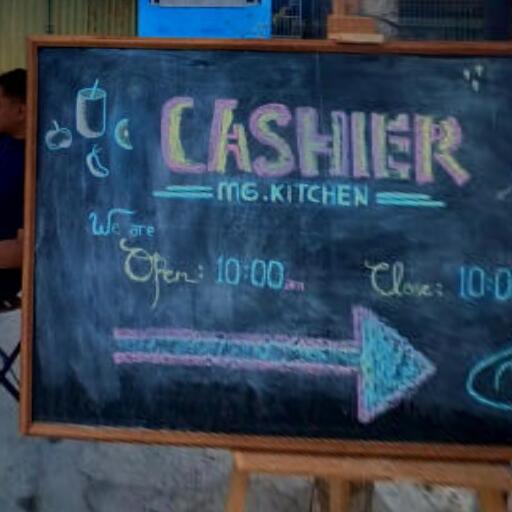 CASHIER
MG.KITCHEN
We are
Open: 10:00am Close: 10:0